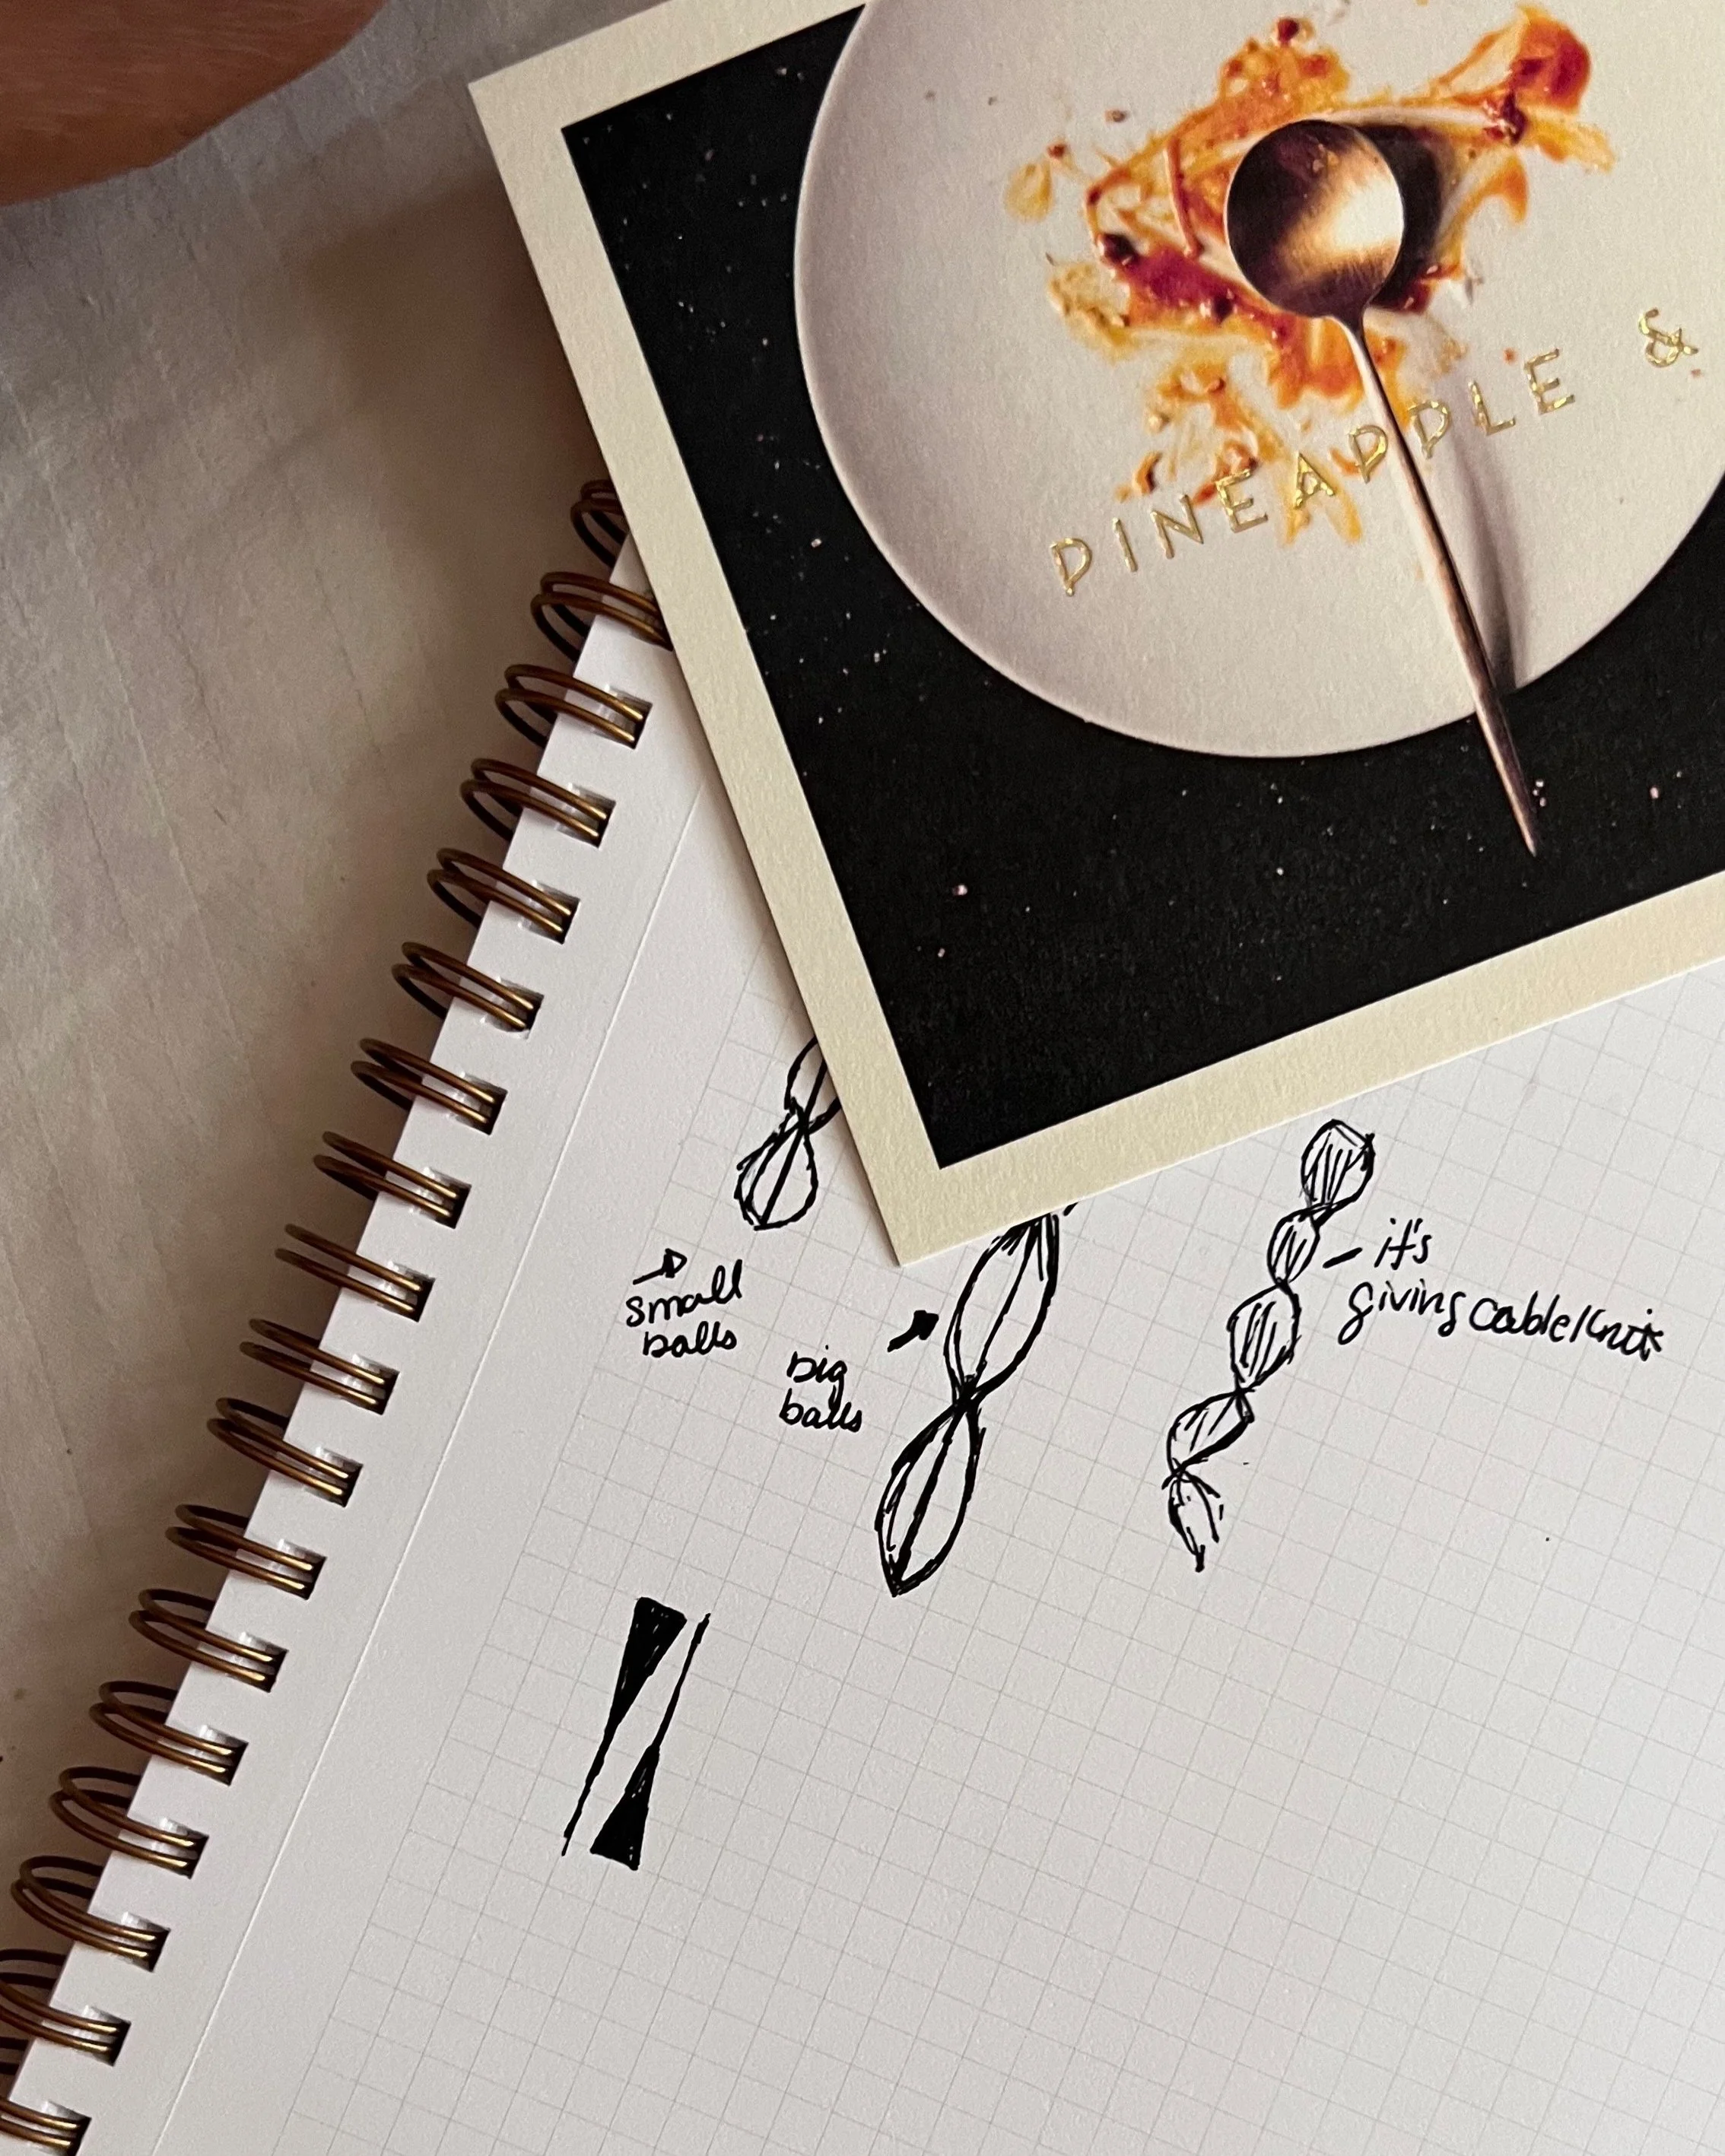 PINEAPPLE &
small
balls
big
balls
it's
giving cable knit